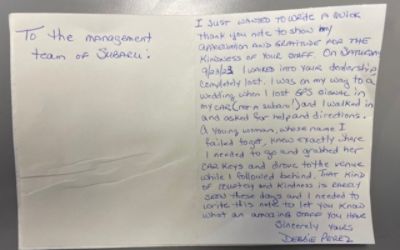 To the management
team of Subaru:
I JUST WANTED TO WRITE A QUICK
thank you note to show my
appreciation AND GRATITUDE FOR THE
KINDNESS OF YOUR STAFF. ON SATURDAY
9/23/23 I WALKED INTO YOUR DEALERSHIP,
completely lost. I was on my way to a
wedding when I lost GPS signal in
my CAR (not a Subaru!) and I walked in
and asked for help and directions.
A young woman, whose name I
failed to get, knew exactly where
I needed to go and grabbed her
CAR KEYS and drove to the venue
while I followed behind. THAT KIND
OF courtesy and kindness is rarely
seen these days and I needed to
write this note to let you know
what an amazing staff you have
Sincerely Yours
DEBBIE PEREZ